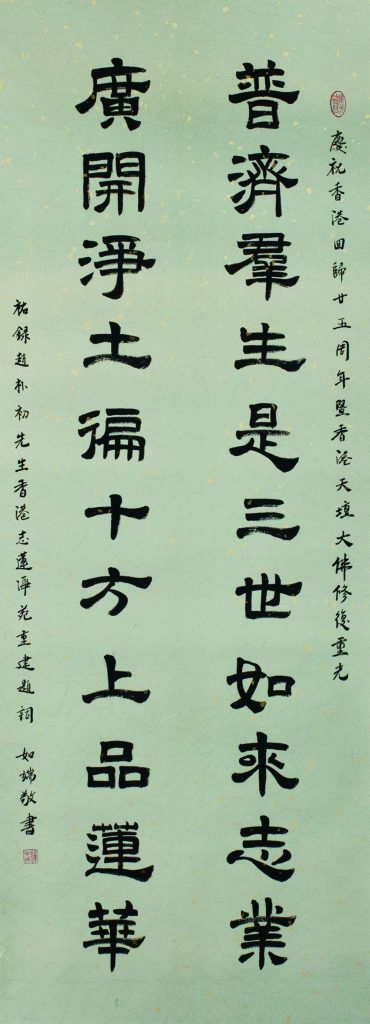 慶祝香港回歸廿五周年暨香港天壇大佛修復重光
普濟羣生是三世如來志業
廣開淨土徧十方上品蓮華
敬錄趙朴初先生香港志蓮淨苑重建題詞 如瑞敬書